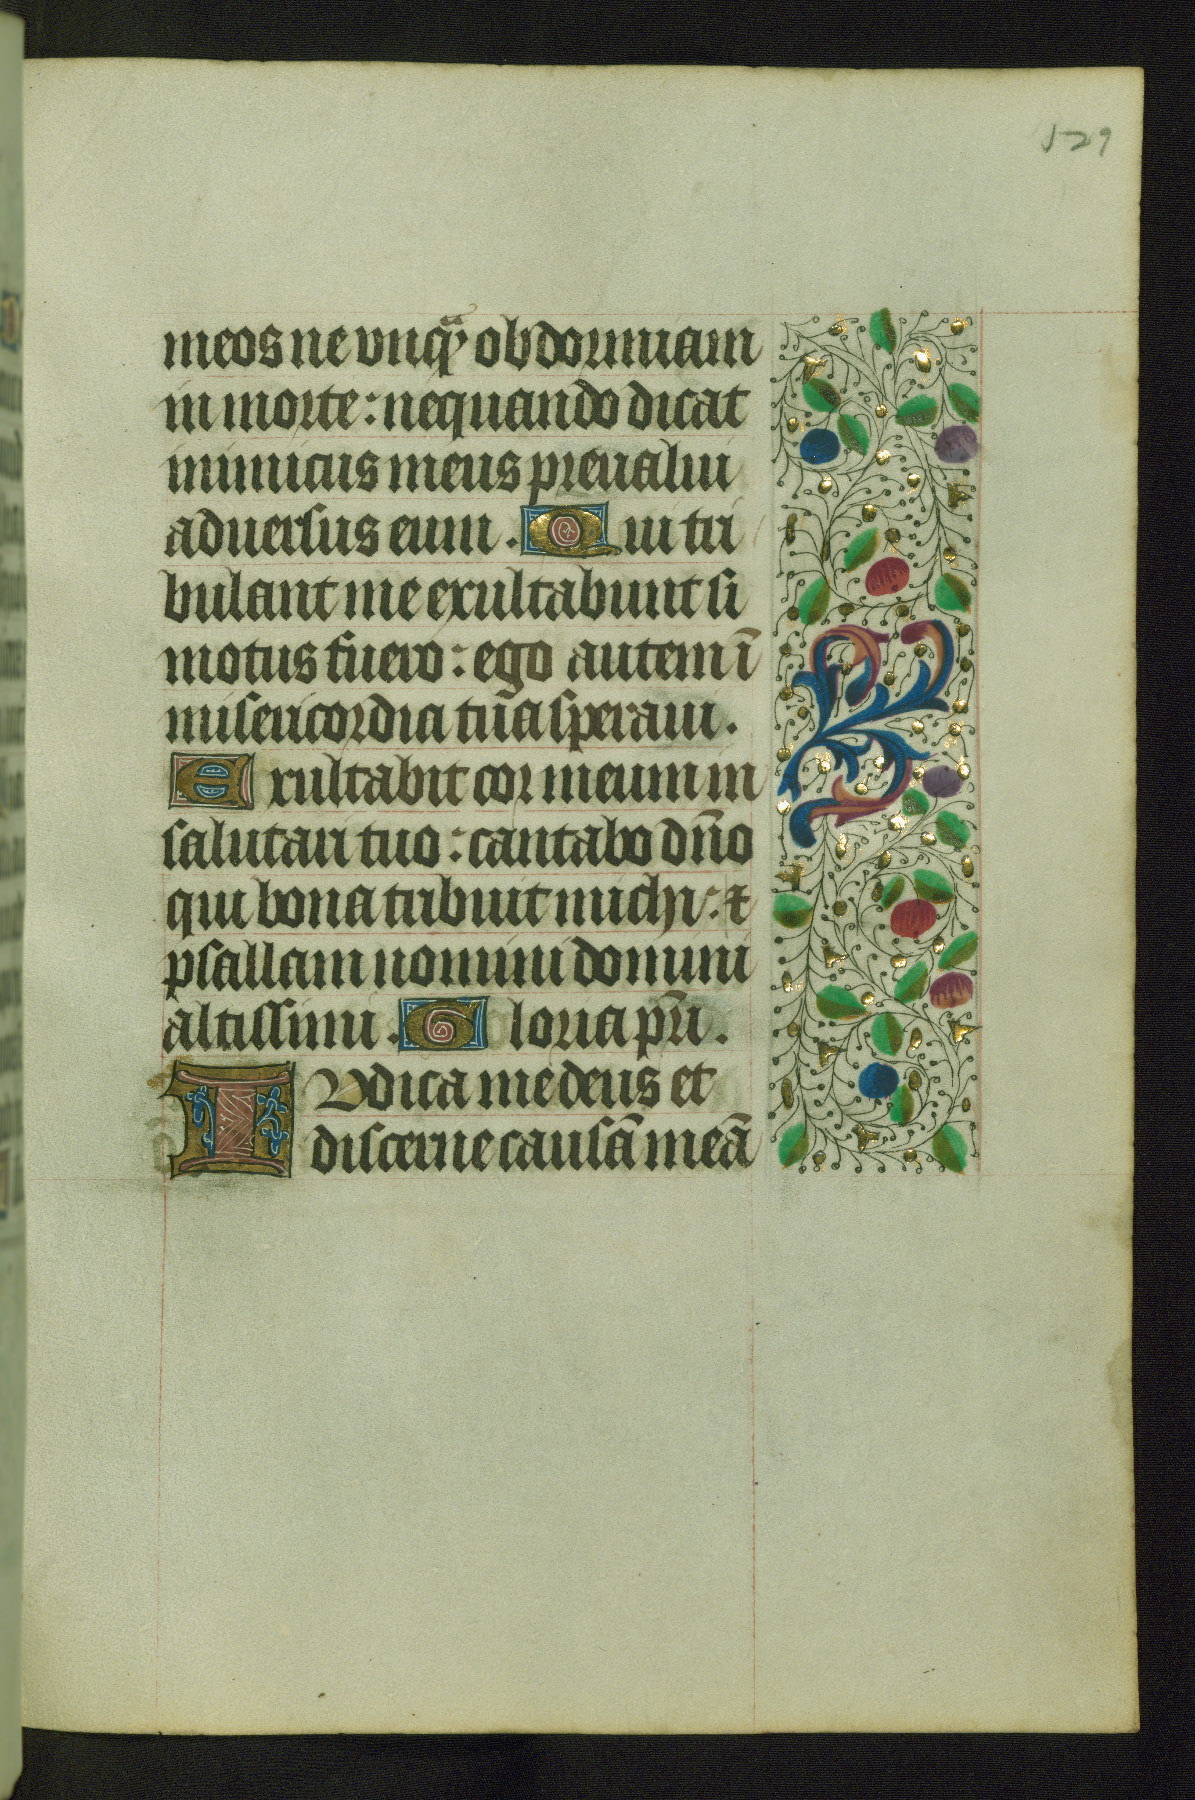 129
meos ne vnqᷓ obdormiam
in morte: nequando dicat
inimicus meus preualui
aduersus eum. Qui tri
bulant me exultabunt si
motus fuero: ego autem ī
misericordia tūa speraui.
Exultabit cor meum in
salutari tuo: cantabo dn̄o
qui bona tribuit michi: ⁊
psallam nomini domini
altissimi. Gloria pr̄i.
IVdica me deus et
discerne causā meā